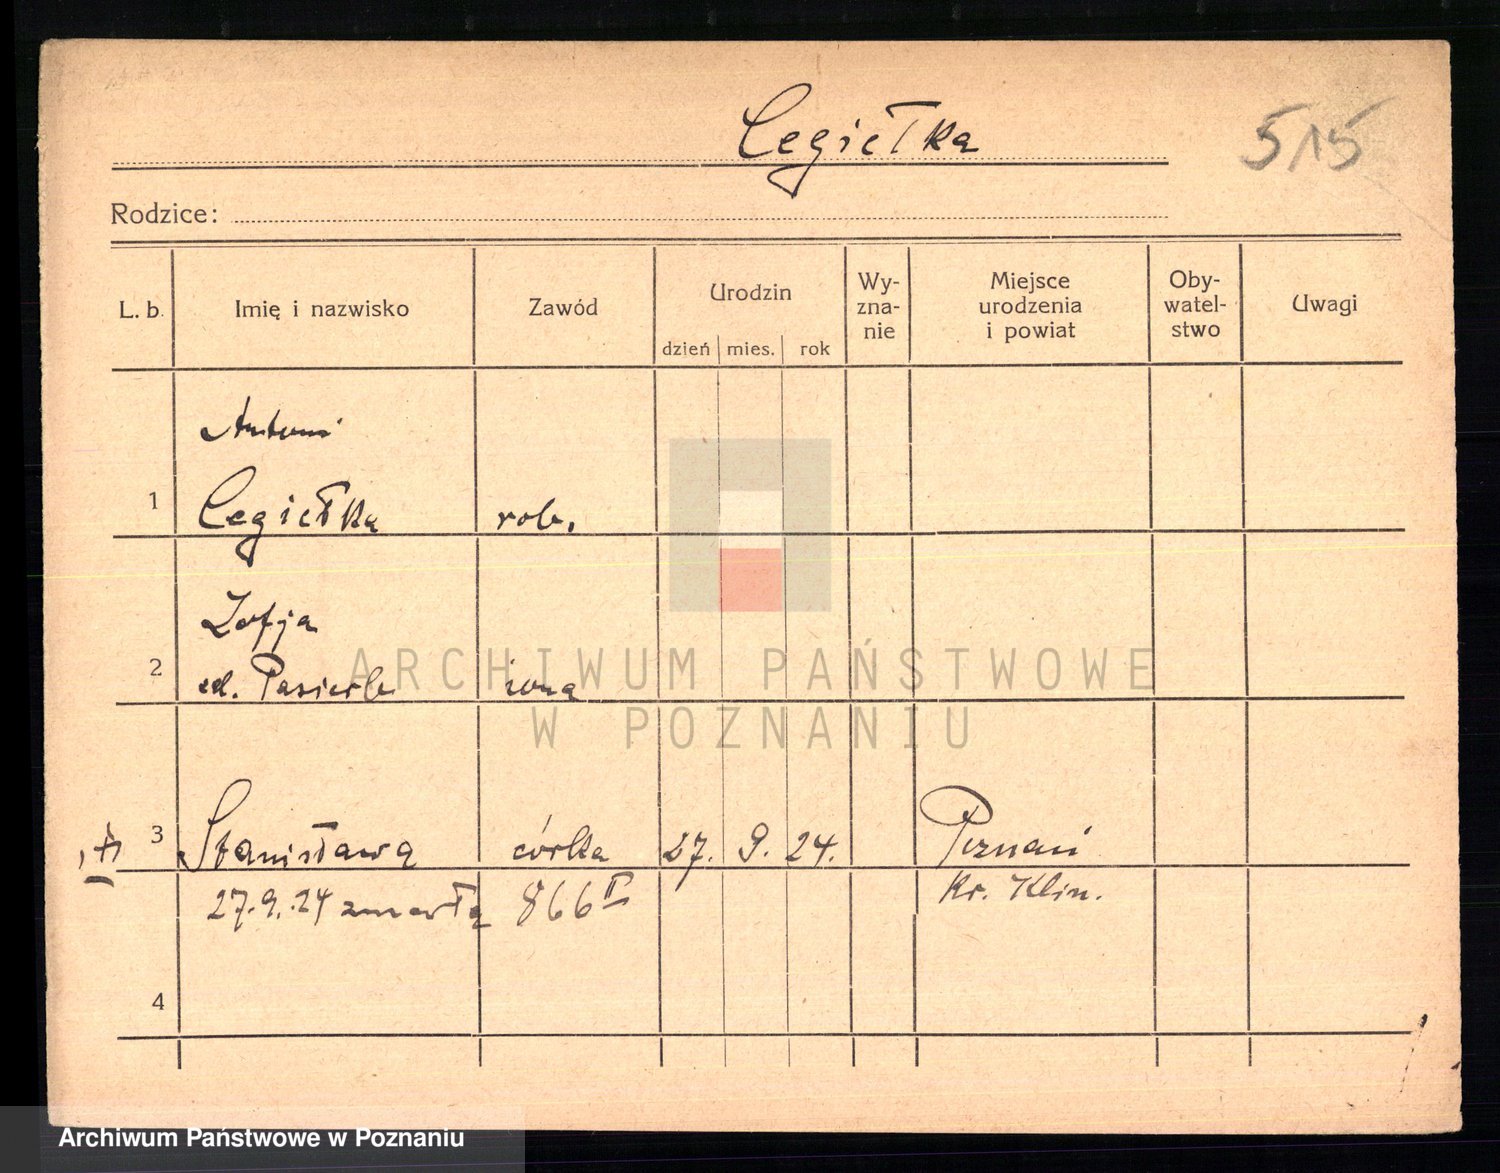 Cegiełka
515
Rodzice:
L. b. Imię i nazwisko Zawód Urodzin dzień mies. rok Wy-zna-nie Miejsce urodzenia i powiat Oby-watel-stwo Uwagi
Antoni
1 Cegiełka rob.
Zofja
2 Pasierb żona
ARCHIWUM PAŃSTWOWE
W POZNANIU
3 Stanisława córka 27. 9. 24. Poznań
27.9.24 zmarła 866 II Kr. Klin.
4
Archiwum Państwowe w Poznaniu